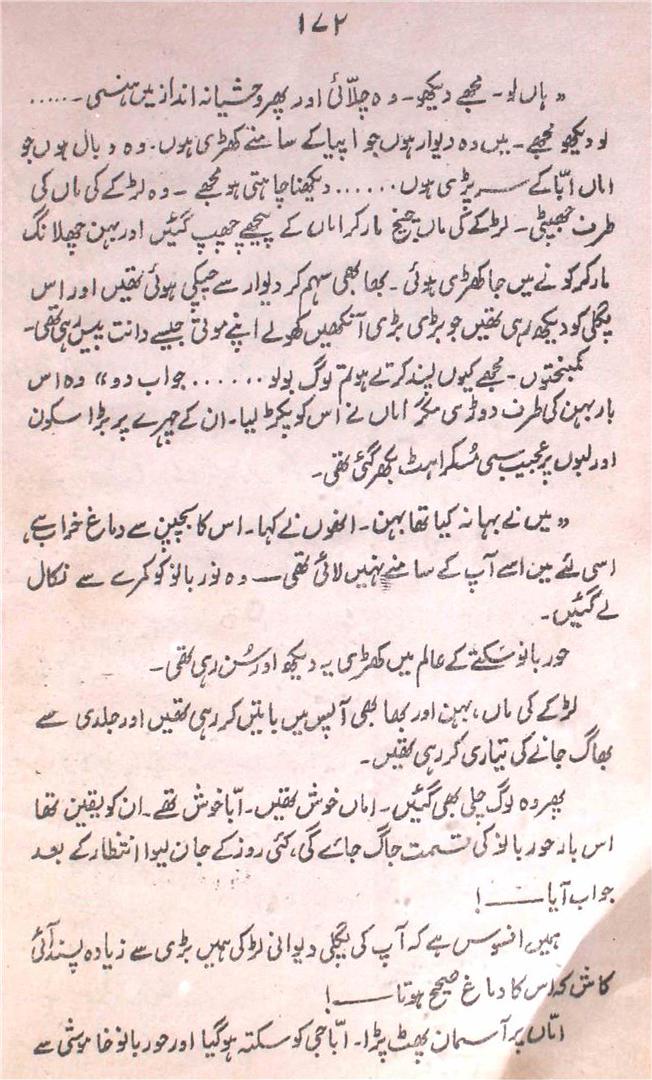 ۱۷۲
» ہاں لو۔ مجھے دیکھو۔ وہ چلّائی اور پھر وحشیانہ انداز میں ہنسی۔.....
لو دیکھو مجھے۔ میں وہ دیوار ہوں جو اپیا کے سامنے کھڑی ہوں۔ وہ وبال ہوں جو
اماں ابّا کے سر پڑی ہوں...... دیکھنا چاہتی ہو مجھے۔ وہ لڑکے کی ماں کی
طرف جھپٹی۔ لڑکے کی ماں چیخ مار کر اماں کے پیچھے چھپ گئیں اور بہن چھلانگ
مار کر کونے میں جا کھڑی ہوئی۔ بھابھی سہم کر دیوار سے چپکی ہوئی تھیں اور اس
پگلی کو دیکھ رہی تھیں جو بڑی بڑی آنکھیں کھولے اپنے موتی جیسے دانت پیس رہی تھی۔
کمبختوں۔ مجھے کیوں پسند کرتے ہو تم لوگ بولو...... جواب دو« وہ اس
بار بہن کی طرف دوڑی مگر اماں نے اس کو پکڑ لیا۔ ان کے چہرے پر بڑا سکون
اور لبوں پر عجیب سی مُسکراہٹ بکھر گئی تھی۔
» میں نے بہانہ کیا تھا بہن۔ انھوں نے کہا۔ اس کا بچپن سے دماغ خراب ہے،
اسی لئے میں اسے آپ کے سامنے نہیں لائی تھی — وہ نور بانو کو کمرے سے نکال
لے گئیں۔
حور بانو سَکتے کے عالم میں کھڑی یہ دیکھ اور سُن رہی تھی۔
لڑکے کی ماں، بہن اور بھابھی آپس میں باتیں کر رہی تھیں اور جلدی سے
بھاگ جانے کی تیاری کر رہی تھیں۔
پھر وہ لوگ چلی بھی گئیں۔ اماں خوش تھیں۔ ابّا خوش تھے۔ ان کو یقین تھا
اس بار حور بانو کی قسمت جاگ جائے گی، کئی روز کے جان لیوا انتظار کے بعد
جواب آیا —— !
ہمیں افسوس ہے کہ آپ کی پگلی دیوانی لڑکی ہمیں بڑی سے زیادہ پسند آئی
کاش کہ اس کا دماغ صحیح ہوتا —— !
امّاں پر آسمان پھٹ پڑا۔ ابّا جی کو سکتہ ہو گیا اور حور بانو خاموشی سے